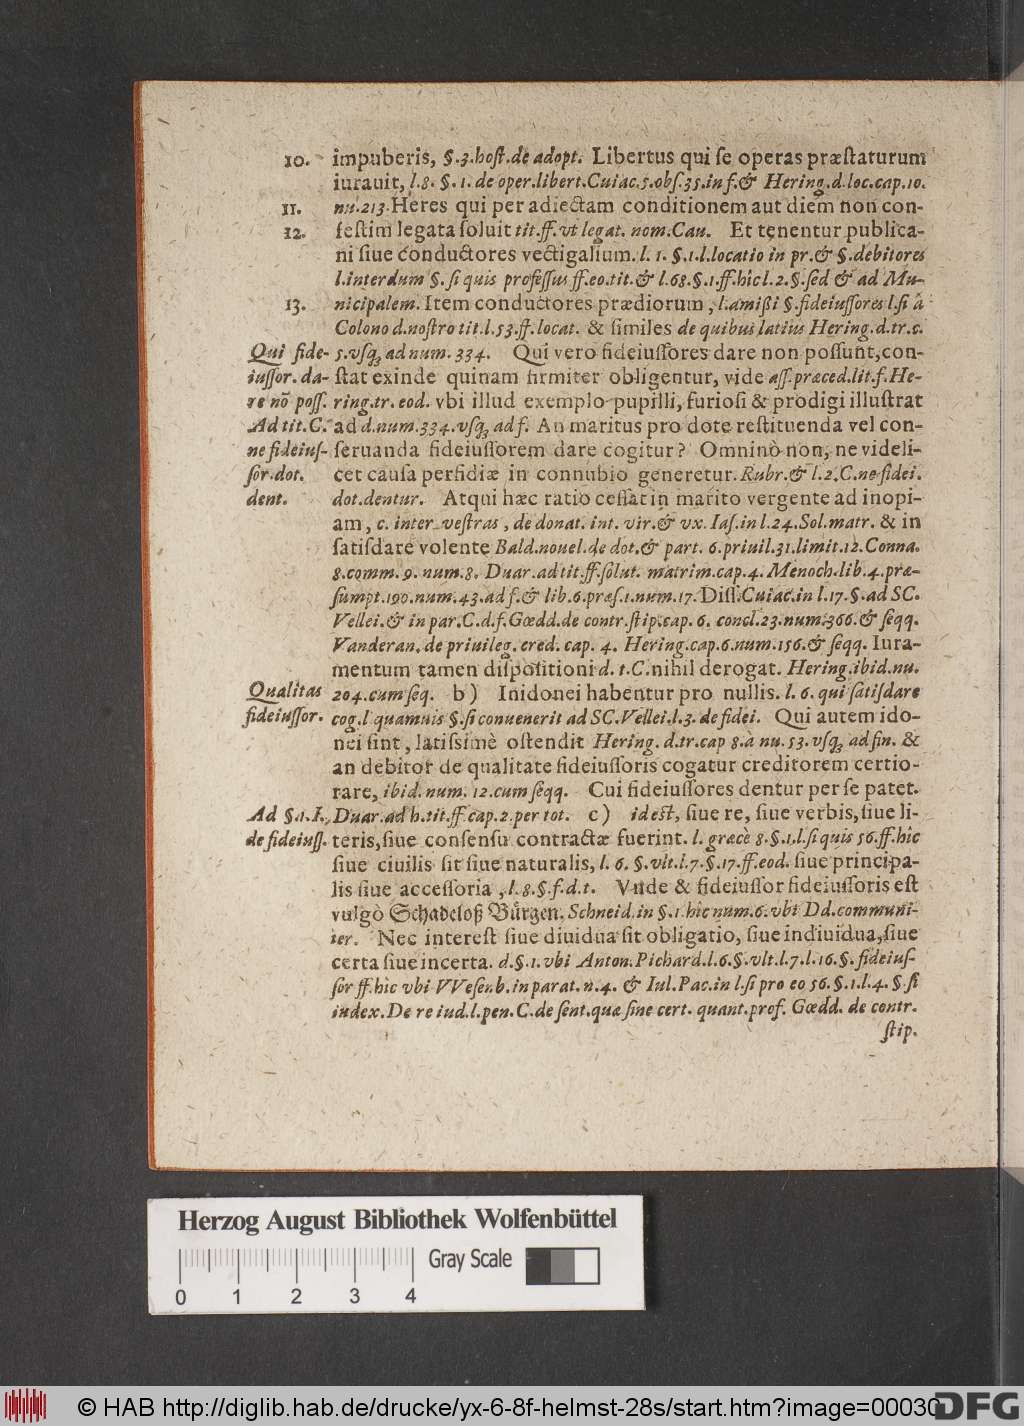 10. impuberis, §.3.host.de adopt. Libertus qui se operas præstaturum
iurauit, l.8. §. 1. de oper.libert.Cuiac.5.obs.35.in f.& Hering.d.loc.cap.10.
11. nu.213. Heres qui per adiectam conditionem aut diem non con-
12. festim legata soluit tit.ff.vt legat. nom.Cau. Et tenentur publica-
ni siue conductores vectigalium. l. 1. §.1.l.locatio in pr.& §.debitores
l.interdum §. si quis professus ff.eo.tit.& l.68.§.1.ff.hîc l.2.§.sed & ad Mu-
13. nicipalem. Item conductores prædiorum, l.amißi §.fideiussores l.si à
Colono d.nostro tit.l.53.ff.locat. & similes de quibus latius Hering.d.tr.c.
Qui fide- 5.vsq; ad num. 334. Qui vero fideiussores dare non possunt, con-
iussor. da- stat exinde quinam firmiter obligentur, vide ass.præced.lit.f.He-
re nō poss. ring.tr. eod. vbi illud exemplo pupilli, furiosi & prodigi illustrat
Ad tit. C. ad d.num.334.vsq; ad f. An maritus pro dote restituenda vel con-
ne fideius- seruanda fideiussorem dare cogitur? Omninò non, ne videli-
sor.dot. cet causa perfidiæ in connubio generetur. Rubr.& l.2.C.ne fidei.
dent. dot.dentur. Atqui hæc ratio cessat in marito vergente ad inopi-
am, c. inter vestras, de donat. int. vir.& vx. Ias.in l.24.Sol.matr. & in
satisdare volente Bald.nouel.de dot.& part. 6.priuil.31.limit.12.Conna.
8.comm.9. num.8. Duar.ad tit.ff.solut. matrim.cap.4. Menoch.lib.4.præ-
sumpt.190.num.43.ad f.& lib.6.præs.1.num.17. Diss. Cuiac.in l.17.§.ad SC.
Vellei.& in par.C.d.f.Gœdd.de contr.stip.cap. 6. concl.23.num.366.& seqq.
Vanderan.de priuileg.cred. cap. 4. Hering.cap.6.num.156.& seqq. Iura-
mentum tamen dispositioni d. t.C. nihil derogat. Hering.ibid.nu.
Qualitas 204.cum seq. b) Inidonei habentur pro nullis. l. 6. qui satisdare
fideiussor. cog.l quamuis §.si conuenerit ad SC.Vellei.l.3. de fidei. Qui autem ido-
nei sint, latissimè ostendit Hering. d.tr.cap 8.à nu.53.vsq; ad fin. &
an debitor de qualitate fideiussoris cogatur creditorem certio-
rare, ibid.num. 12.cum seqq. Cui fideiussores dentur per se patet.
Ad §.1.I. Duar.ad h.tit.ff.cap.2.per tot. c) id est, siue re, siue verbis, siue li-
de fideiuss. teris, siue consensu contractæ fuerint. l. græcè 8.§.1.l.si quis 56.ff.hîc
siue ciuilis sit siue naturalis, l. 6. §.vlt.l.7.§.17.ff.eod. siue principa-
lis siue accessoria, l.8.§.f.d.t. Vnde & fideiussor fideiussoris est
vulgò Schadeloß Bürgen. Schneid.in §.1.hîc num.6.vbi Dd.communi-
ter. Nec interest siue diuidua sit obligatio, siue indiuidua, siue
certa siue incerta. d.§.1.vbi Anton.Pichard.l.6.§.vlt.l.7.l.16.§. fideius-
sor ff.hîc vbi VVesenb.in parat.n.4. & Iul.Pac.in l.si pro eo 56.§.1.l.4. §.si
iudex. De re iud.l.pen.C.de sent.quæ sine cert. quant.prof. Gœdd. de contr.
stip.
Herzog August Bibliothek Wolfenbüttel
Gray Scale
0 1 2 3 4
© HAB http://diglib.hab.de/drucke/yx-6-8f-helmst-28s/start.htm?image=00030
DFG